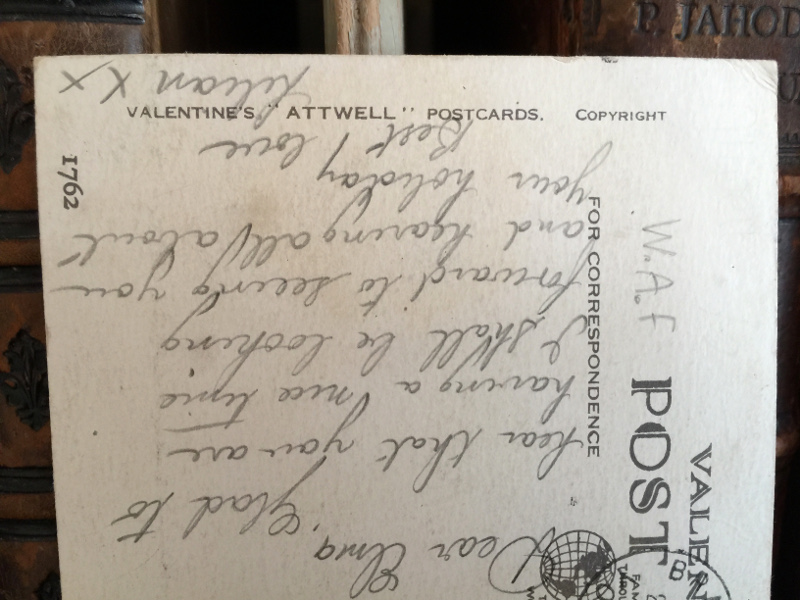 P. JAHOD
VALENTINE'S "ATTWELL" POSTCARDS. COPYRIGHT
1762
FOR CORRESPONDENCE
W.A.F
POST
VALEN
Dear Elma
Glad to
hear that you are
having a nice time
I shall be looking
forward to seeing you
and hearing all about
your holiday
Best love
Lilian X X